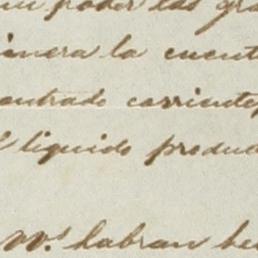 poder las gra
inera la cuent
entrado corriente
l liquido produ
Ms. habran he